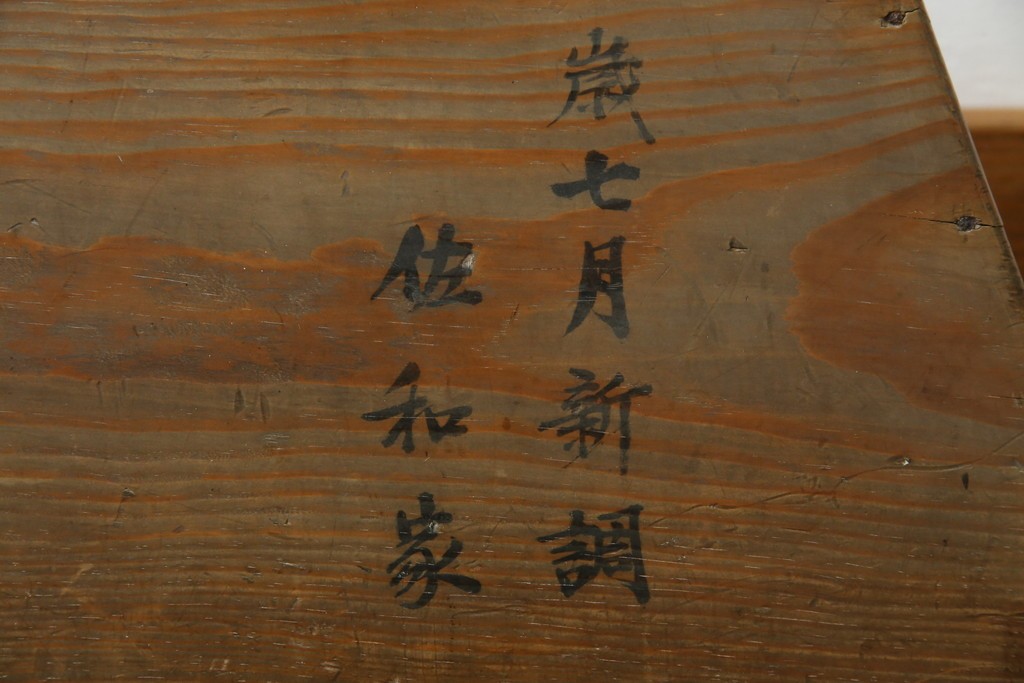 歳七月新調
佐和家